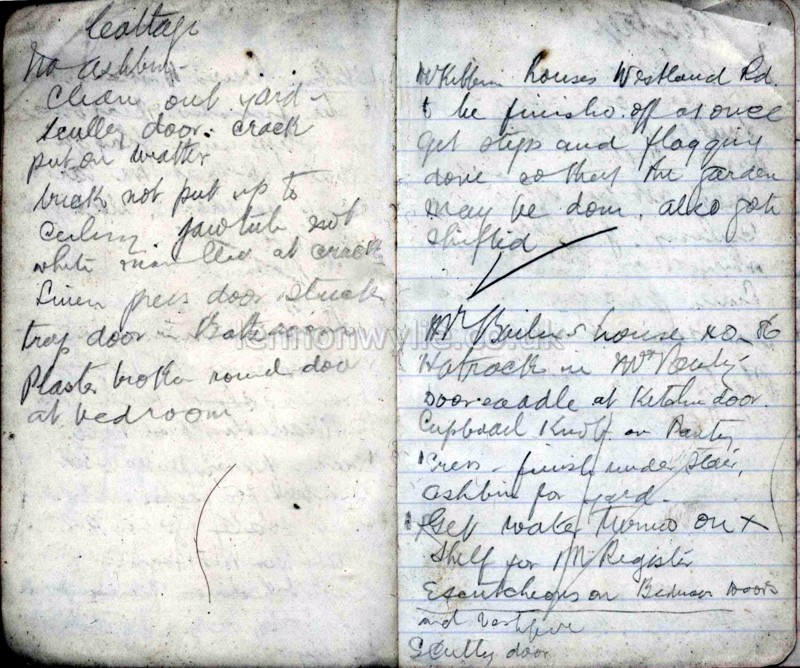 Cottage
no ashbin
Clean out yard
Sculley door. crack
put on watter
brick not put up to
Ceiling. jawtub not
white at crack
Linen press door stuck
trap door in Bathroom
Plaster broken round door
at bedroom
McKibbin houses Westland Rd.
to be finishd. off at once
Get steps and flagging
done so that the garden
may be done. also gate
shifted
Mr houses No. 86
Hatrack in
Door saddle at Kitchin door.
Cupboard Knob on Panty
Press - finish under Stair,
ashbin for yard.
Get water turned on x
Shelf for M Register
Escutcheons on Bedroom Doors
and vestibue
Sculley door
lennonwylie.co.uk